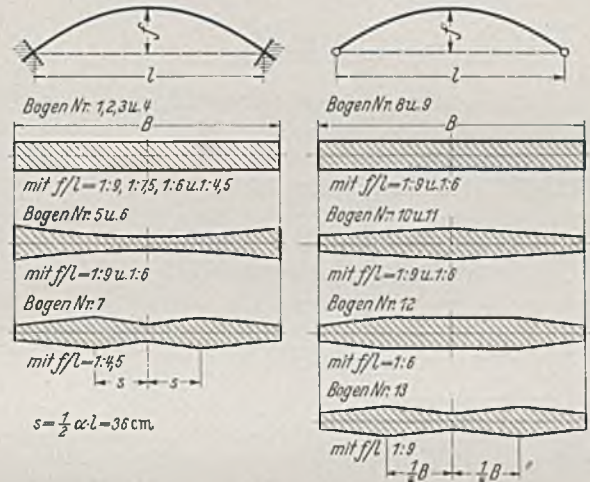 f
l
Bogen Nr. 1,2,3u.4
B
mit f/l=1:9, 1:7,5, 1:6 u.1:4,5
Bogen Nr. 5u.6
mit f/l=1:9u.1:6
Bogen Nr. 7
mit f/l=1:4,5
s s
s=1/2 α·l=36cm
f
l
Bogen Nr. 8u.9
B
mit f/l=1:9u.1:6
Bogen Nr. 10u.11
mit f/l=1:9u.1:6
Bogen Nr. 12
mit f/l=1:6
Bogen Nr. 13
mit f/l 1:9